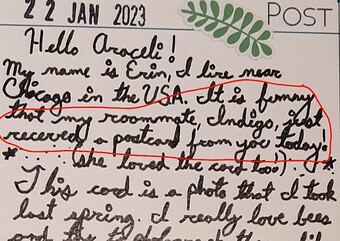 22 JAN 2023
POST
Hello Araceli!
My name is Erin, I live near
Chicago in the USA. It is funny
that my roommate, Indigo, just
received a postcard from you today!
* (she loved the card too!) *
This card is a photo that I took
last spring. I really love bees
and